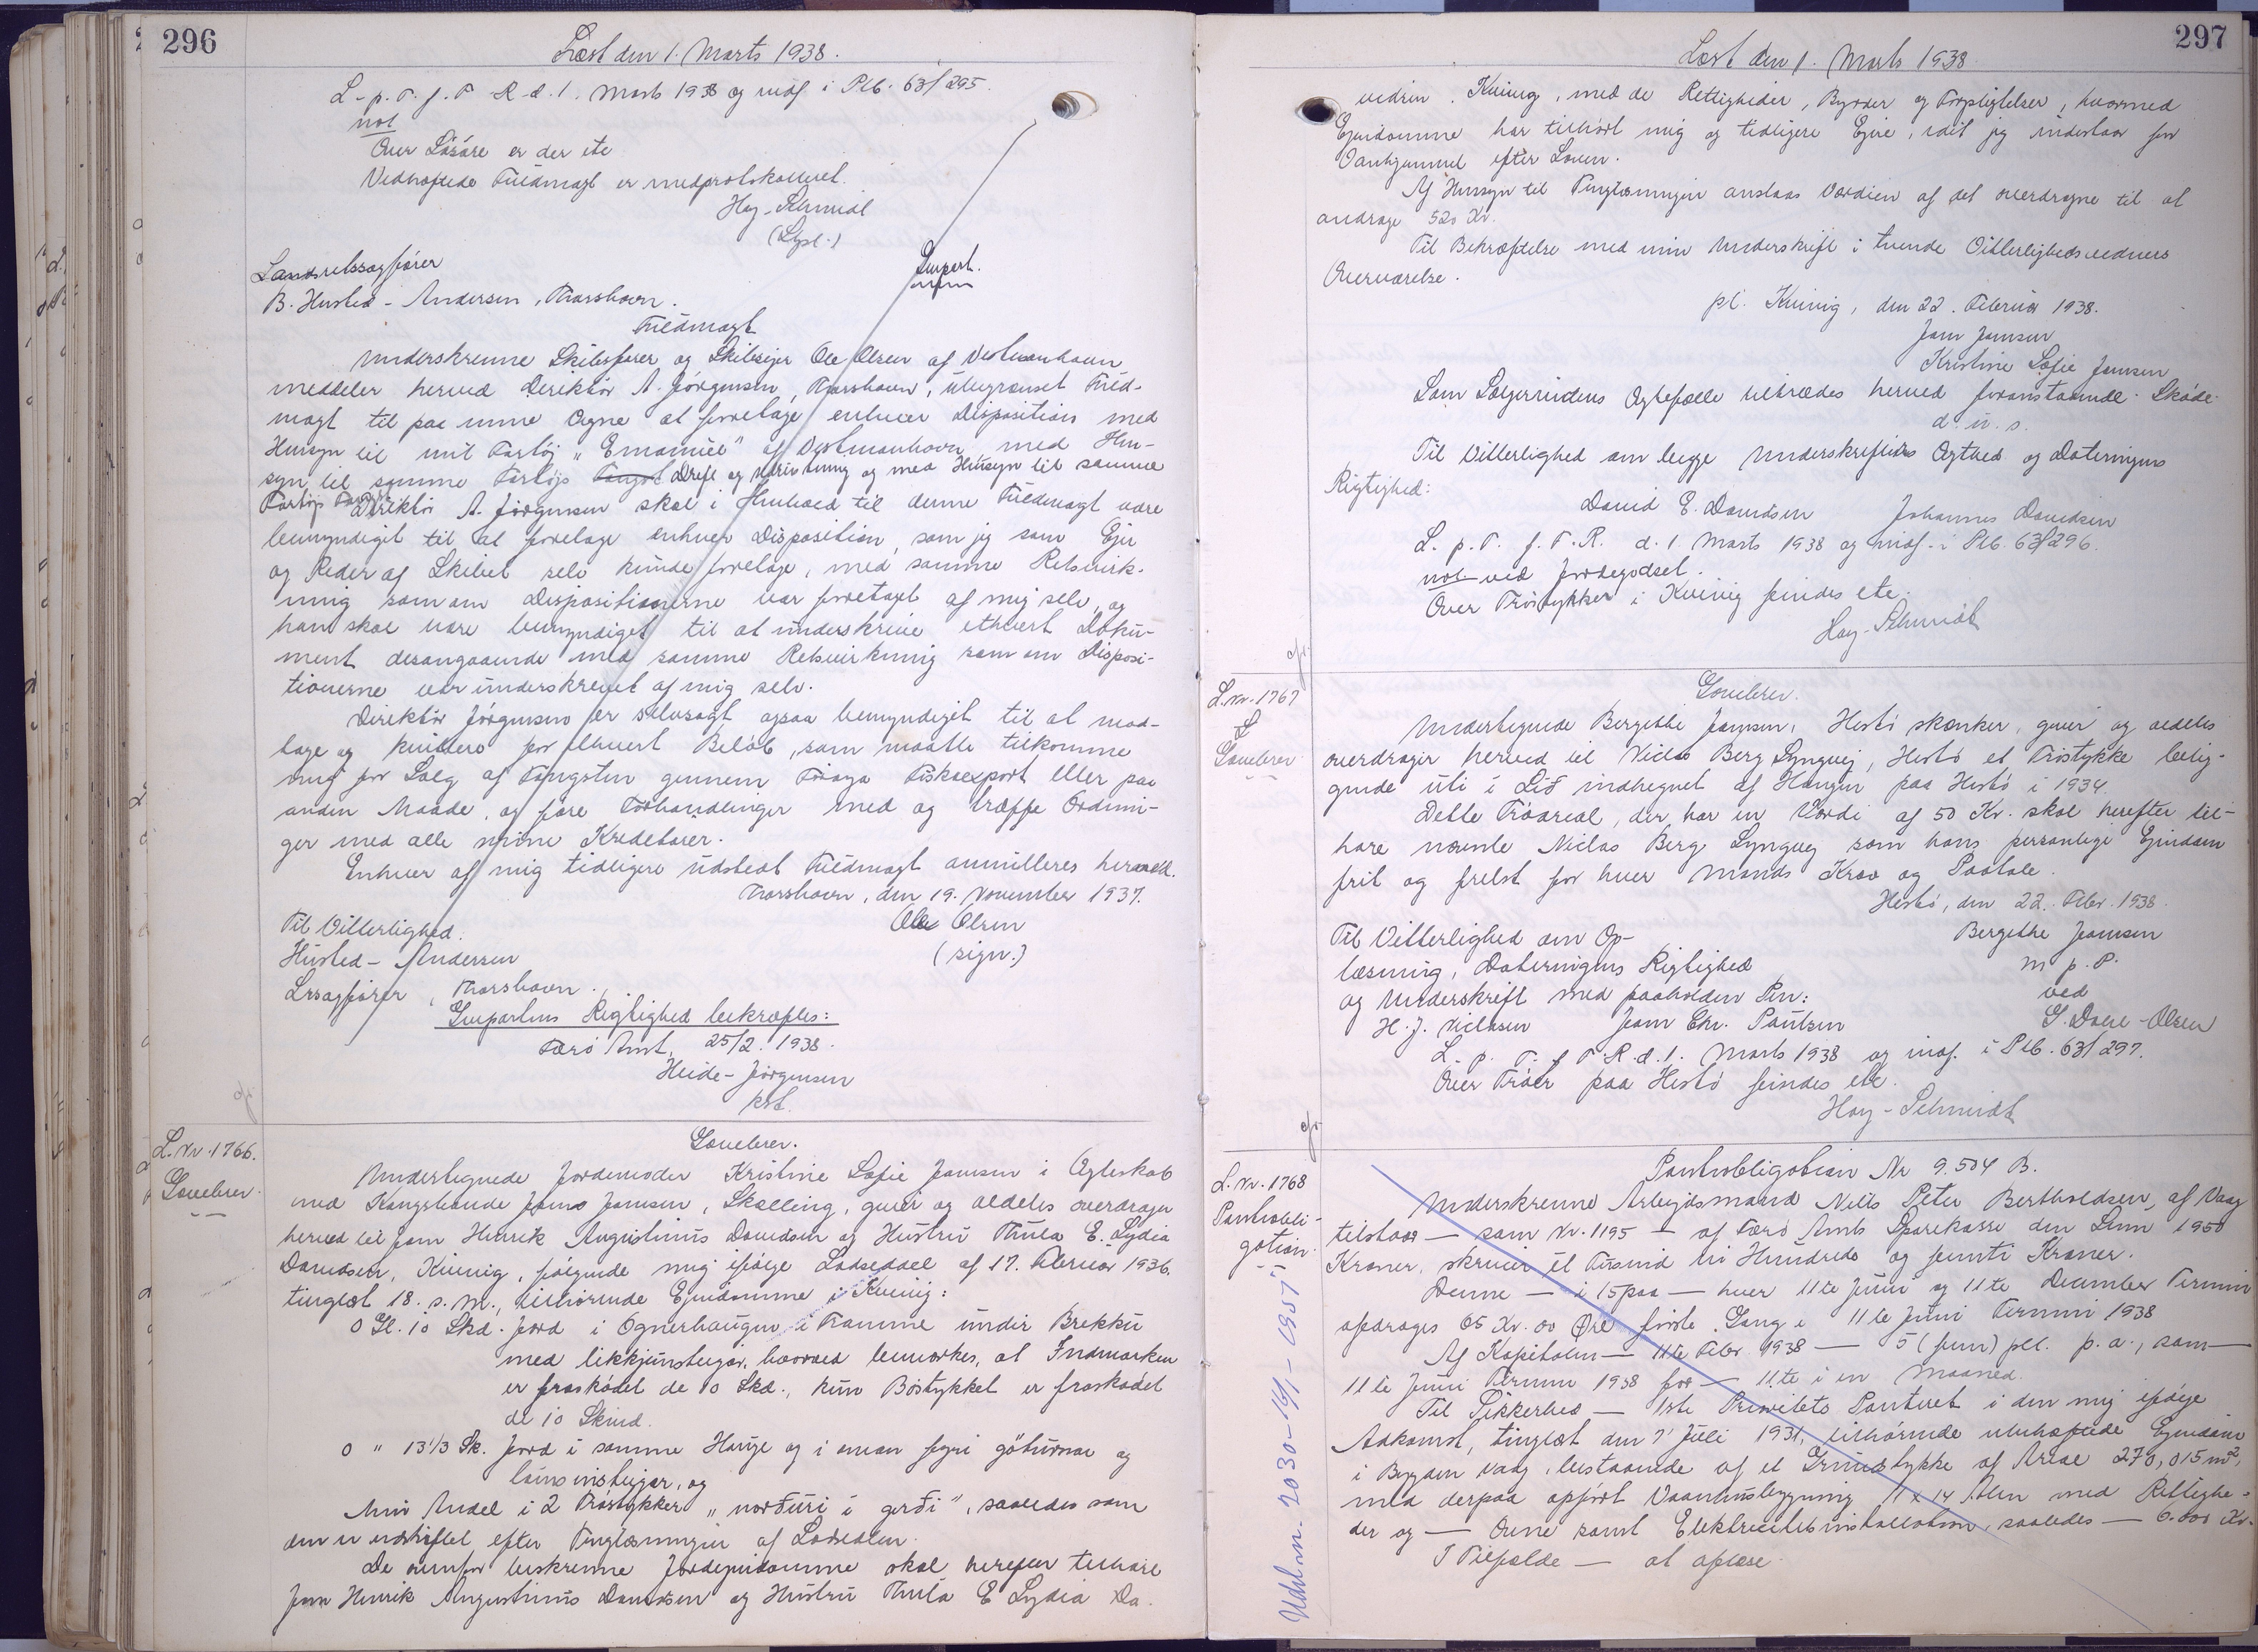 296
Læst den 1. Marts 1938.
L. p. T. f. T. R. d. 1. Marts 1938 og indf. i Plb. 63/295.
not
Over Løsøre er der etc
Vedhæftede Fuldmagt er medprotokolleret.
Hoy-Schmidt
(Lysl.)
Landsretssagfører
B. Husted-Andersen, Thorshavn.
Genpart.
Fuldmagt
Underskrevne Skibsfører og Skibsejer Ole Olsen af Vestmanhavn
meddeler herved Direktør A. Jørgensen, Thorshavn, ubegrænset Fuld-
magt til paa mine Vegne at foretage enhver Disposition med
Hensyn til mit Fartøj "Emanuel" af Vestmanhavn med Hen-
syn til samme Fartøjs Fangst Drift og Udrustning og med Hensyn til samme
Fartøjs Fangst. Direktør A. Jørgensen skal i Henhold til denne Fuldmagt være
bemyndiget til at foretage enhver Disposition, som jeg som Ejer
og Reder af Skibet selv kunde foretage, med samme Retsvirk-
ning som om Dispositionerne var foretaget af mig selv, og
han skal være bemyndiget til at underskrive ethvert Doku-
ment desangaaende med samme Retsvirkning som om Disposi-
tionerne var underskrevet af mig selv.
Direktør Jørgensen er selvsagt ogsaa bemyndiget til at mod-
tage og kvittere for ethvert Beløb, som maatte tilkomme
mig for Salg af Fangsten gennem Føroya Fiskaexport eller paa
anden Maade, og føre Forhandlinger med og træffe Ordnin-
ger med alle mine Kreditorer.
Enhver af mig tidligere udstedt Fuldmagt annulleres herved.
Thorshavn, den 19. November 1937.
Til Vitterlighed:
Ole Olsen
Husted-Andersen
(sign.)
Lrsagfører, Thorshavn.
Genpartens Rigtighed bekræftes:
Færø Amt, 25/2. 1938.
Heide-Jørgensen
kst.
L. Nr. 1766.
Gavebrev.
Gavebrev.
Undertegnede Jordemoder Kristine Sofie Jamsen i Ægteskab
med Kongsbonde Jams Jamsen, Skælling, giver og aldeles overdrager
herved til Jam Henrik Augustinus Davidsen og Hustru Thula E. Lydia
Davidsen, Kvivig, følgende mig ifølge Lodseddel af 17. Februar 1936.
tinglæst 18. s. M., tilhørende Ejendomme i Kvivig:
0 Gl. 10 Skd. Jord i Ognerhaugen i Tramme undir Brekku
med likkjunsteigar, hvorved bemærkes, at Indmarken
er fraskødet de 10 Skd., kun Bøstykket er fraskødet
de 10 Skind.
0 " 13 1/3 Sk. Jord i samme Hauge og i oman fyri gøturnar og
teigjar, og
Min Andel i 2 Trøstykker "norðuri i gerði", saaledes som
den er udskiftet efter Tinglæsningen af Lodsedlen.
De ovenfor beskrevne Jordejendomme skal herefter tilhøre
Jam Henrik Augustinus Davidsen og Hustru Thula E Lydia Da-
297
Læst den 1. Marts 1938
vidsen, Kvivig, med de Rettigheder, Byrder og Forpligtelser, hvormed
Ejendomme har tilhørt mig og tidligere Ejere, idet jeg indestaar for
Vanhjemmel efter Loven.
Af Hensyn til Tinglæsningen anslaas Værdien af det overdragne til at
andrage 520 Kr.
Til Bekræftelse med min Underskrift i tvende Vitterlighedsvidners
Overværelse.
pt. Kvivig, den 22. Februar 1938.
Jam Jamsen
Kristine Sofie Jamsen
Som Sælgerindens Ægtefælle tiltrædes herved foranstaaende Skøde.
d. u. s.
Til Vitterlighed om begge Underskrifters Ægthed og Dateringens
Rigtighed:
David E. Davidsen Johannes Davidsen
L. p. T. f. T. R. d. 1 Marts 1938 og indf. i Plb. 63/296.
not. ved Jordegodset.
Over Trøstykker i Kvivig findes etc.
Hoy-Schmidt
L. Nr. 1767
Gavebrev
Gavebrev.
Undertegnede Bergithe Jamsen, Hestø skænker, giver og aldeles
overdrager herved til Niclas Berg Lyngvej, Hestø et Trøstykke belig-
gende uti i Lið indhegnet af Haugen paa Hestø i 1934.
Dette Trøareal, der har en Værdi af 50 Kr. skal herefter til-
høre nævnte Niclas Berg Lyngvej som hans personlige Ejendom
frit og frelst for hver Mands Krav og Paatale.
Hestø, den 22. Febr. 1938.
Til Vitterlighed om Op-
Bergithe Jamsen
læsning, Dateringens Rigtighed
m. p. P.
og Underskrift med paaholden Pen:
ved
H. J. Niclasen Jam Chr. Poulsen
S. Dahl-Olsen
L. p. T. f. T. R. d. 1. Marts 1938 og indf. i Plb. 63/297.
Over Trøer paa Hestø findes etc.
Hoy-Schmidt
L. Nr. 1768
Pantobli-
gation
Pantobligation Nr 9.504 B.
Underskrevne Arbejdsmand Niels Peter Bertholdsen, af Vaag
tilstaar — som Nr. 1195 — af Færø Amts Sparekasse den Sum 1950
Kroner, skriver et Tusind ni Hundrede og femti Kroner.
Denne — i 15 paa — hver 11te Juni og 11te December Termin
afdrages 65 Kr. 00 Øre første Gang i 11te Juni Termin 1938
Af Kapitalen — 11te Febr. 1938 — 5 (fem) pCt. p. a., som —
11te Juni Termin 1938 for — 11te i en Maaned.
Til Sikkerhed — 1ste Prioritets Panteret i den mig ifølge
Adkomst, tinglæst den 7' Juli 1931, tilhørende ubehæftede Ejendom
i Bygden Vaag, bestaaende af et Grundstykke af Areal 270,015 m²,
med derpaa opført Vaaningsbygning 11 x 14 Alen med Rettighe-
der og — Ovne samt Elektricitetsinstallation, saaledes — 6.000 Kr.
I Tilfælde — at aflæse.
Udslett. 2030-16/1-1951